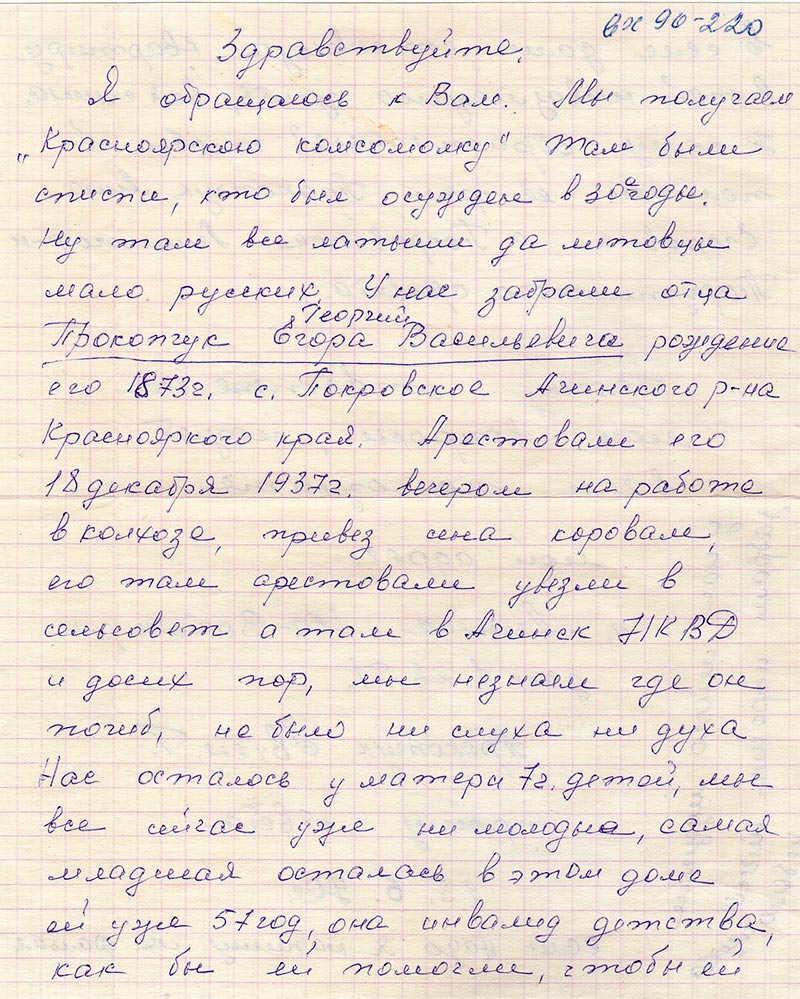 вх 90-220
Здравствуйте.
Я обращаюсь к Вам. Мы получаем
„Красноярскою комсомолку" Там были
списки, кто был осужден в 30ые годы.
Ну там все латыши да литовцы
мало русских. У нас забрали отца
Георгий
Прокопчук Егора Васильевича рождение
его 1873г. с. Покровское Ачинского р-на
Краснояркого края. Арестовали его
18 декабря 1937г. вечером на работе
в колхозе, привез сена коровам,
его там арестовали увезли в
сельсовет а там в Ачинск НКВД
и досих пор, мы незнаем где он
погиб, не было ни слуха ни духа
Нас осталось у матери 7г. детей, мы
все сичас уже ни молоды, самая
младшая осталась в этом доме
ей уже 57 год, она инвалид детства,
как бы ей помогли, чтобы ей